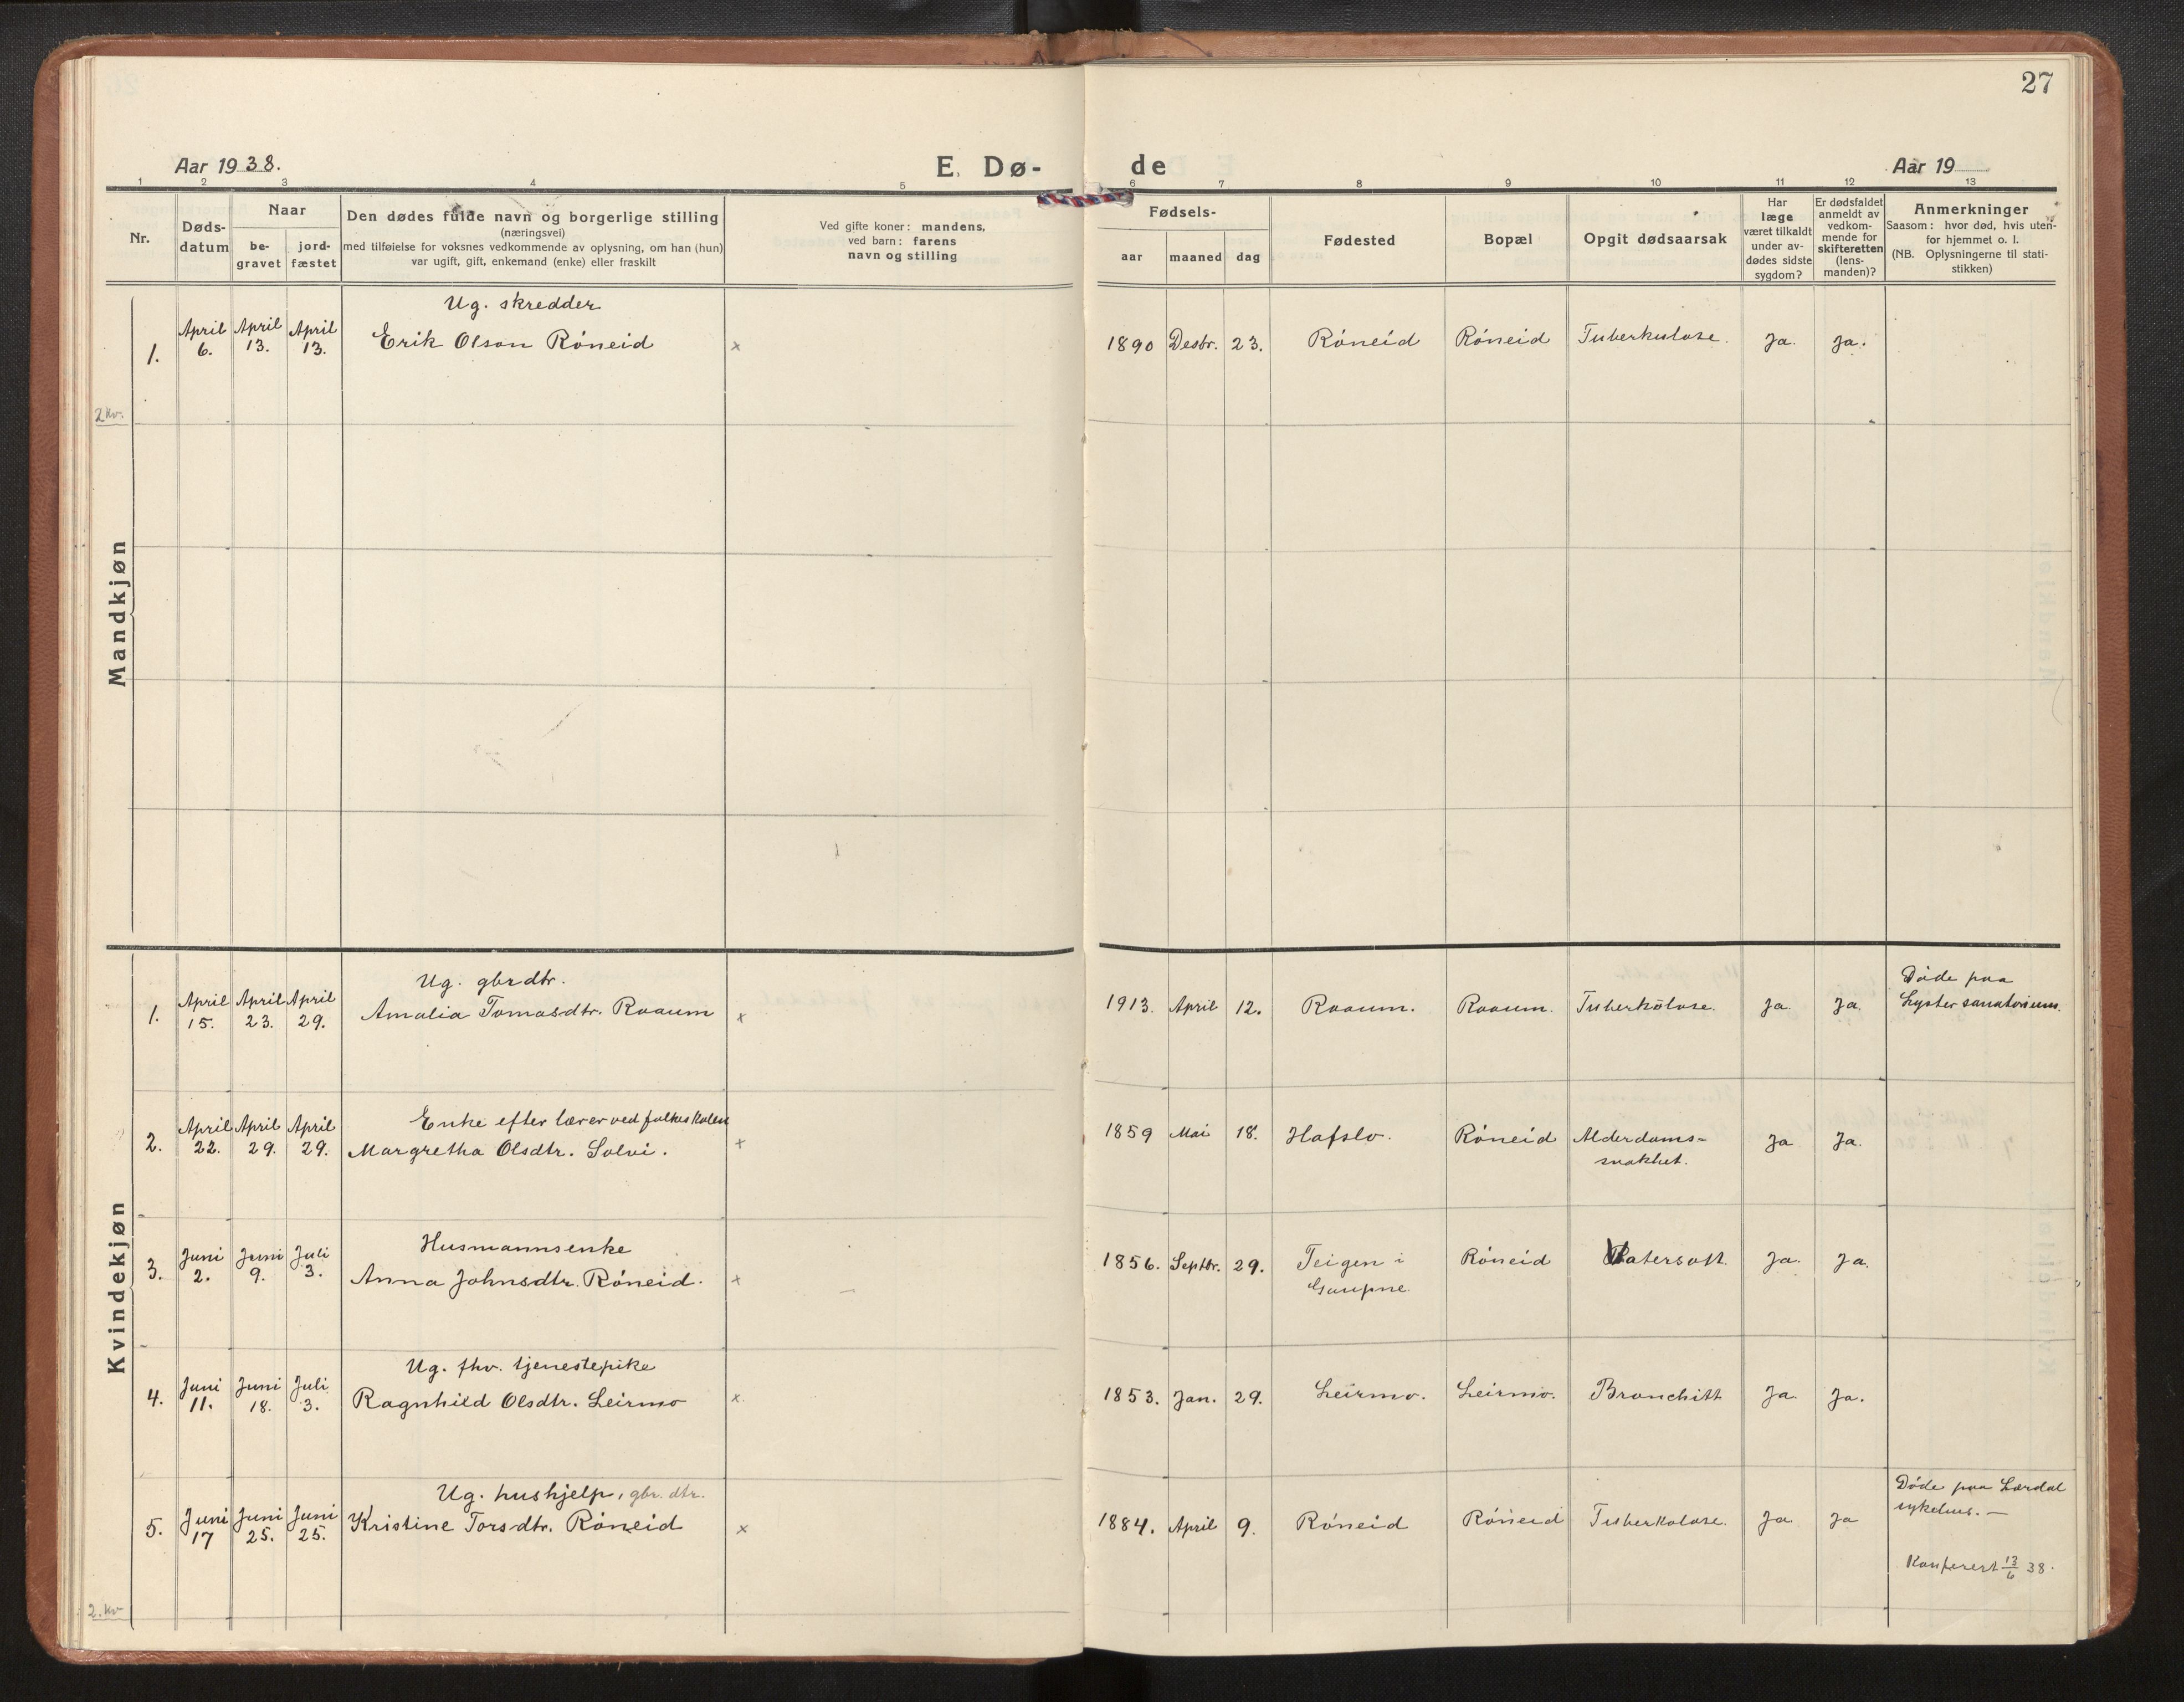 27
Aar 1938.
E. Dø-
de
Aar 19
1 2 3 4 5 6 7 8 9 10 11 12 13
Nr.
Døds-
datum
Naar
be-
gravet
jord-
fæstet
Den dødes fulde navn og borgerlige stilling
(næringsvei)
med tilføielse for voksnes vedkommende av oplysning, om han (hun)
var ugift, gift, enkemand (enke) eller fraskilt
Ved gifte koner: mandens,
ved barn: farens
navn og stilling
Fødsels-
aar maaned dag
Fødested
Bopæl
Opgit dødsaarsak
Har
læge
været tilkaldt
under av-
dødes sidste
sygdom?
Er dødsfaldet
anmeldt av
vedkom-
mende for
skifteretten
(lens-
manden)?
Anmerkninger
Saasom: hvor død, hvis uten-
for hjemmet o. l.
(NB. Oplysningerne til stati-
stikken)
Mandkjøn
Ug. skredder
1. April 6. April 13. April 13. Erik Olson Røneid x 1890 Desbr. 23. Røneid Røneid Tuberkulose. Ja. Ja.
2 Kv.
Kvindekjøn
Ug. gbrdtr. Døde paa
1. April 15. April 23. April 29. Amalia Tomasdtr. Raaum x 1913. April 12. Raaum. Raaum. Tuberkolose. Ja. Ja. Lyster sanatorium.
Enke efter lærer ved folkeskolen
2. April 22. April 29. April 29. Margretha Olsdtr. Solvi. x 1859 Mai 18. Hafslo. Røneid Alderdoms-
svakhet. Ja Ja.
Husmannsenke
3. Juni 2. Juni 9. Juli 3. Anna Johnsdtr. Røneid. x 1856. Septbr. 29. Teigen i
Gaupne. Røneid Vatersott. Ja. Ja.
Ug. fhv. tjenestepike
4. Juni 11. Juni 18. Juli 3. Ragnhild Olsdtr. Leirmo x. 1853. Jan. 29. Leirmo. Leirmo. Bronchitt Ja Ja.
Ug. hushjelp, gbr. dtr. Døde paa Lærdal
5. Juni 17 Juni 25. Juni 25. Kristine Torsdtr. Røneid x 1884. April 9. Røneid Røneid Tuberkolose. Ja Ja sykehus. —
Konferert 13/6 38.
2. Kv